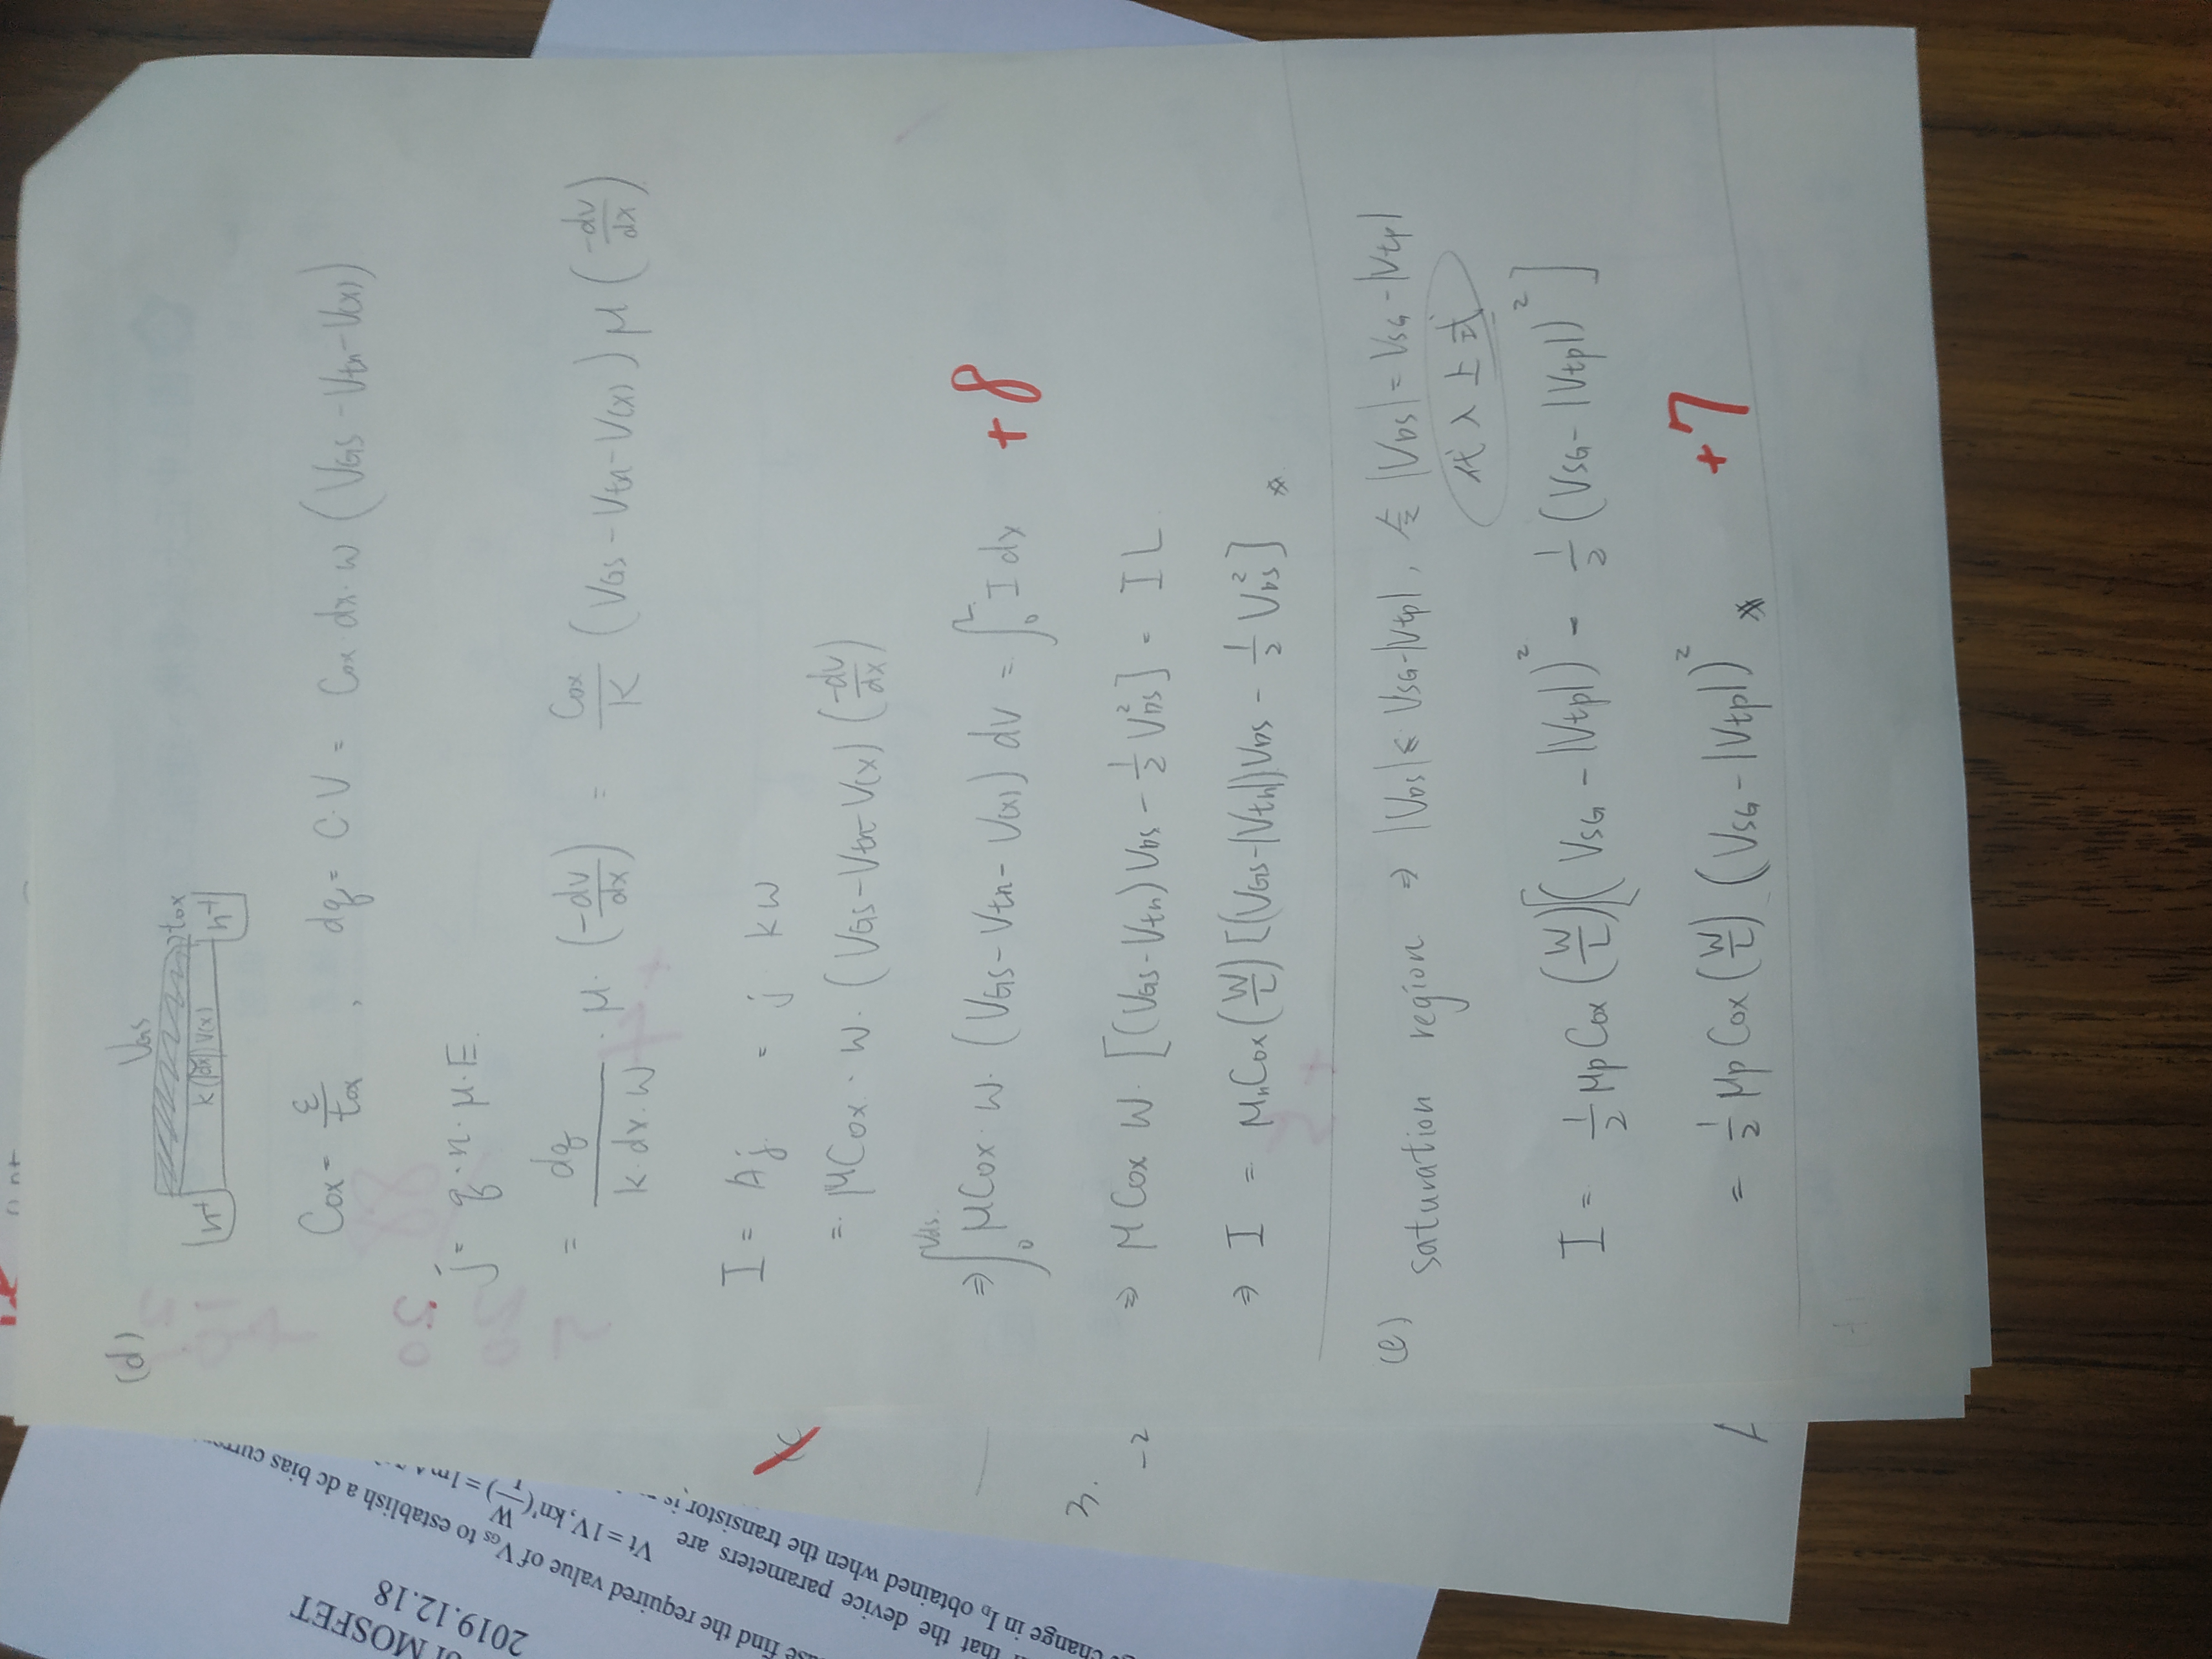 of MOSFET
2019.12.18
find the required value of VGS to establish a dc bias
that the device parameters are Vt = 1V, kn'(W
) = 1mA
change in ID obtained when the transistor is
3.
-2
(d)
VGS
tox
n+ K dx V(x) n+
Cox = ε/tox , dq = C·V = Cox·dx·W (VGS - Vtn - V(x))
20
j = q·n·μ·E.
= dq/(K·dx·W) · μ · (-dv/dx) = Cox/K (VGS - Vtn - V(x)) μ (-dv/dx)
I = Aj = j KW
= μCox · W · (VGS - Vtn - V(x)) (-dv/dx)
⇒ ∫₀^Vds μCox · W · (VGS - Vtn - V(x)) dv = ∫₀^L I dx +8
⇒ μ Cox W · [(VGS - Vtn) VDS - 1/2 VDS²] = I L
⇒ I = μnCox (W/L) [(VGS - |Vtn|) VDS - 1/2 VDS²] ※
(e) saturation region ⇒ |VDS| ≤ VSG - |Vtp| , 令 |VDS| = VSG - |Vtp|
代入上式
I = 1/2 μp Cox (W/L) [(VSG - |Vtp|)² - 1/2 (VSG - |Vtp|)²]
= 1/2 μp Cox (W/L) (VSG - |Vtp|)² ※ +7